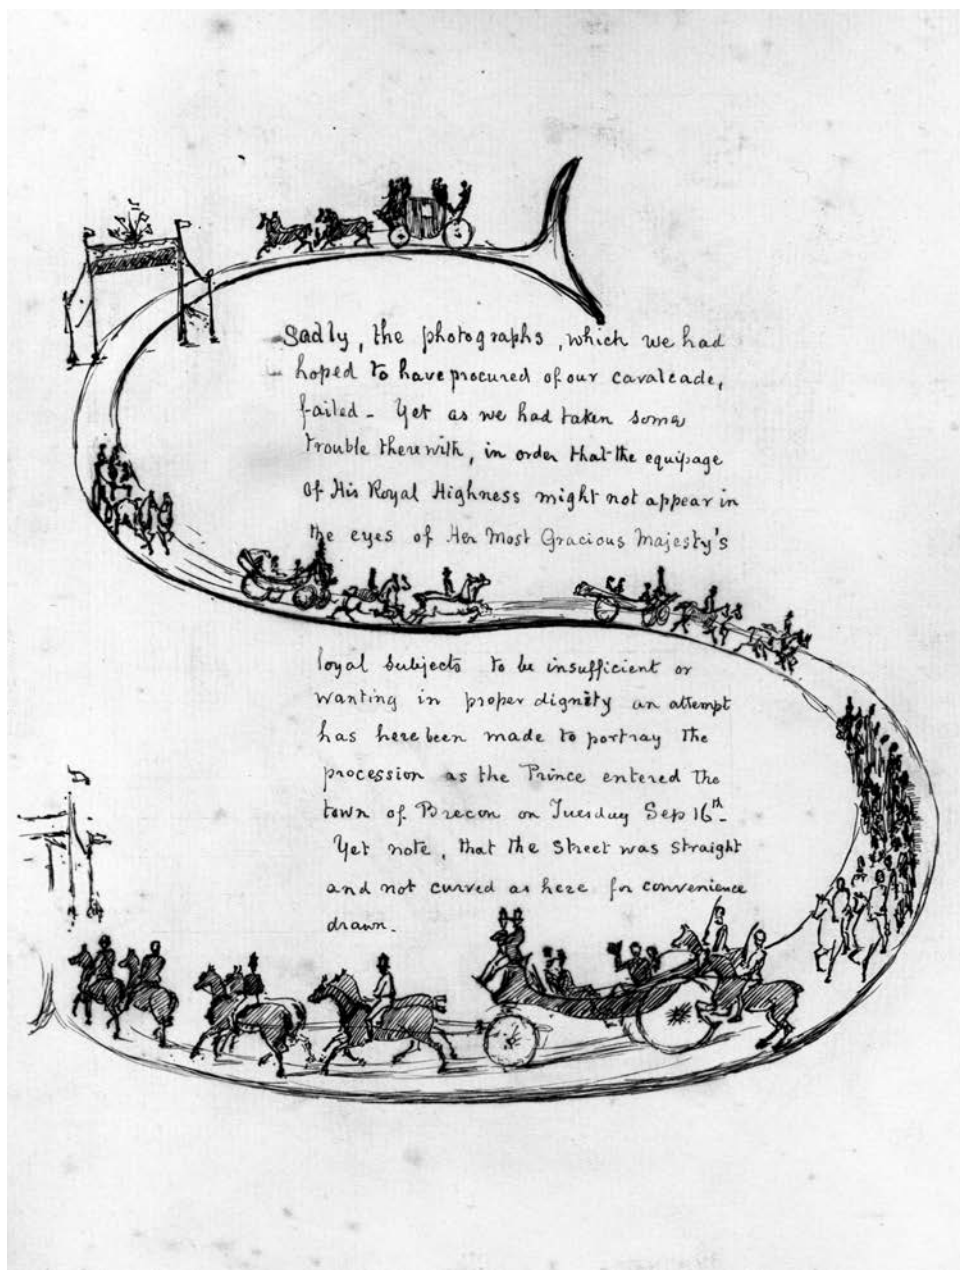 Sadly, the photographs, which we had
hoped to have procured of our cavalcade,
failed - Yet as we had taken some
trouble therewith, in order that the equipage
of His Royal Highness might not appear in
the eyes of Her Most Gracious Majesty's
loyal subjects to be insufficient or
wanting in proper dignity an attempt
has here been made to portray the
procession as the Prince entered the
town of Brecon on Tuesday Sep 16th -
Yet note, that the street was straight
and not curved as here for convenience
drawn -